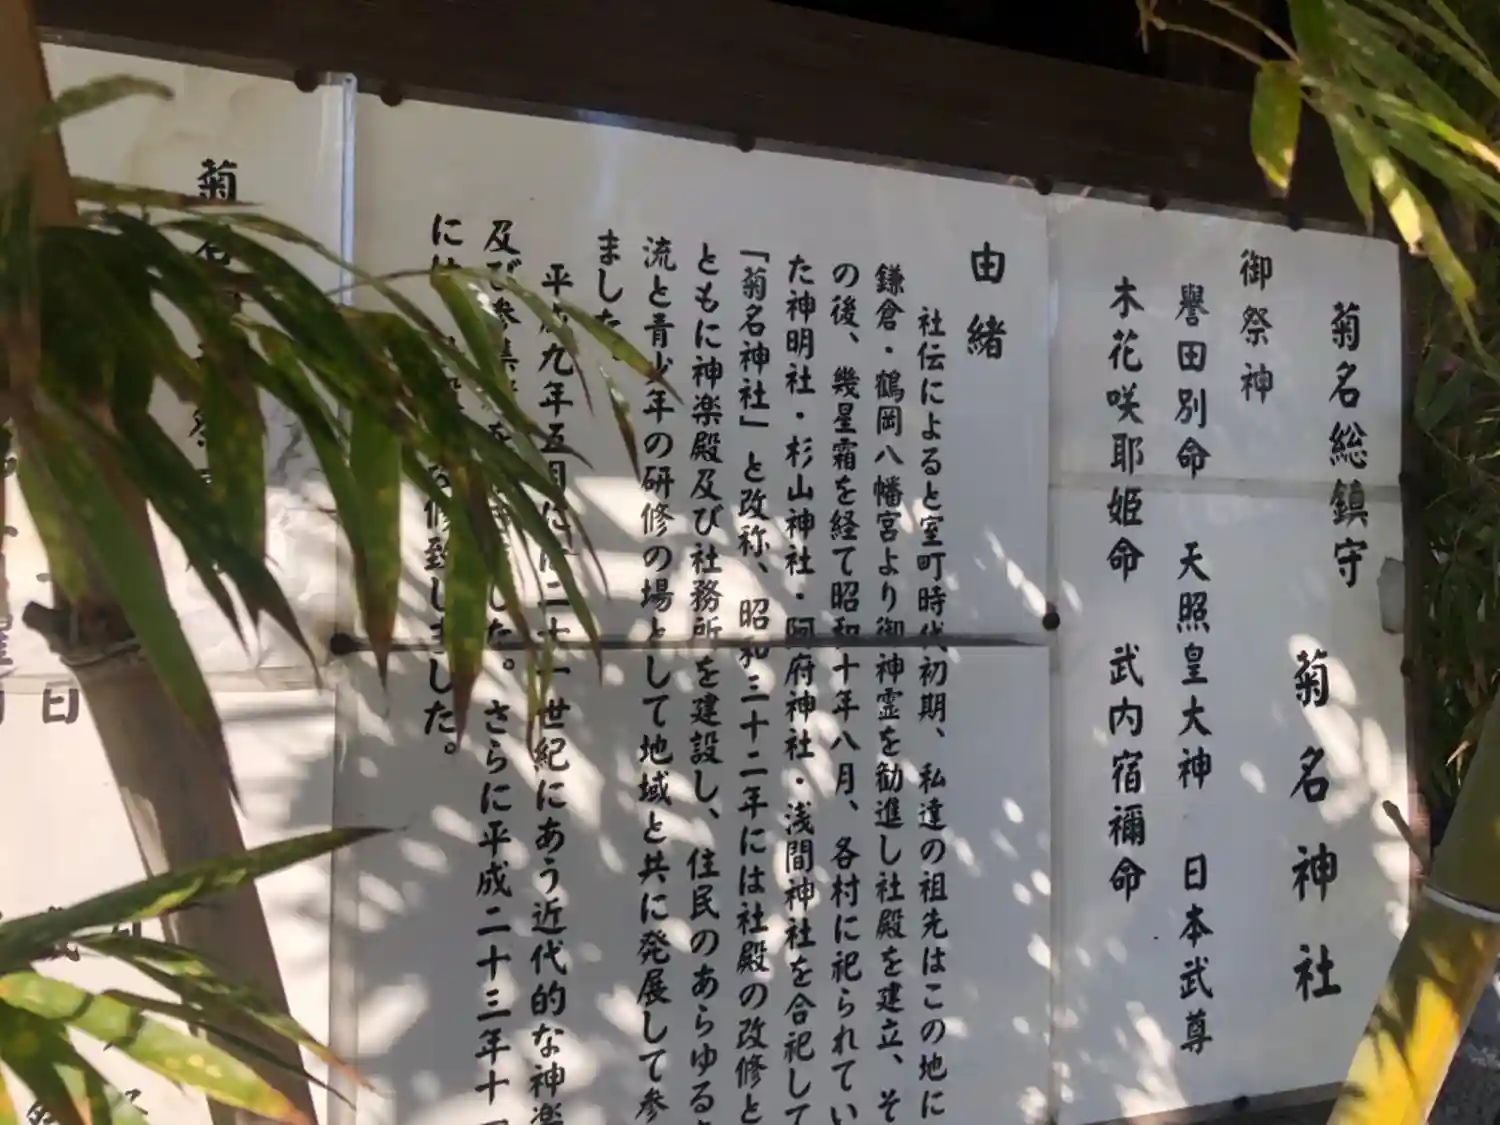 菊名総鎮守
菊名神社
御祭神
誉田別命 天照皇大神 日本武尊
木花咲耶姫命 武内宿禰命
由緒
社伝によると室町時代初期、私達の祖先はこの地に
鎌倉・鶴岡八幡宮より御神霊を勧進し社殿を建立、そ
の後、幾星霜を経て昭和十年八月、各村に祀られてい
た神明社・杉山神社・阿府神社・浅間神社を合祀して
「菊名神社」と改称、昭和三十二年には社殿の改修と
ともに神楽殿及び社務所を建設し、住民のあらゆる
流と青少年の研修の場として地域と共に発展して参
ました
平成九年五月に 二十一世紀にあう近代的な神楽
及び参集 を した。さらに平成二十三年十
には 修致しました。
菊名
日